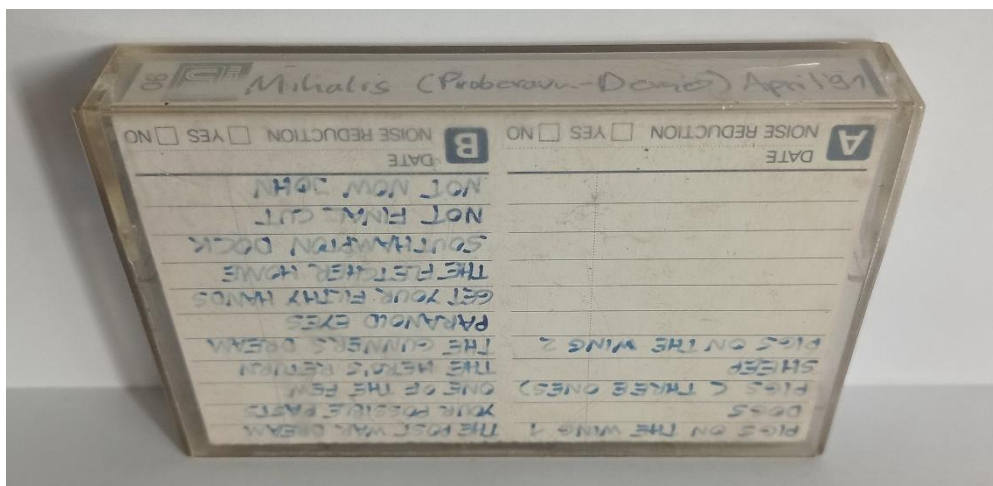 Mihalis (Proberaum-Demos) April '91
90
PIGS ON THE WING 1
DOGS
PIGS ( THREE ONES)
SHEEP
PIGS ON THE WING 2
A DATE
NOISE REDUCTION YES NO
THE POST WAR DREAM
YOUR POSSIBLE PASTS
ONE OF THE FEW
THE HERO'S RETURN
THE GUNNERS DREAM
PARANOID EYES
GET YOUR FILTHY HANDS
THE FLETCHER HOME
SOUTHAMPTON DOCK
NOT FINAL CUT
NOT NOW JOHN
B DATE
NOISE REDUCTION YES NO